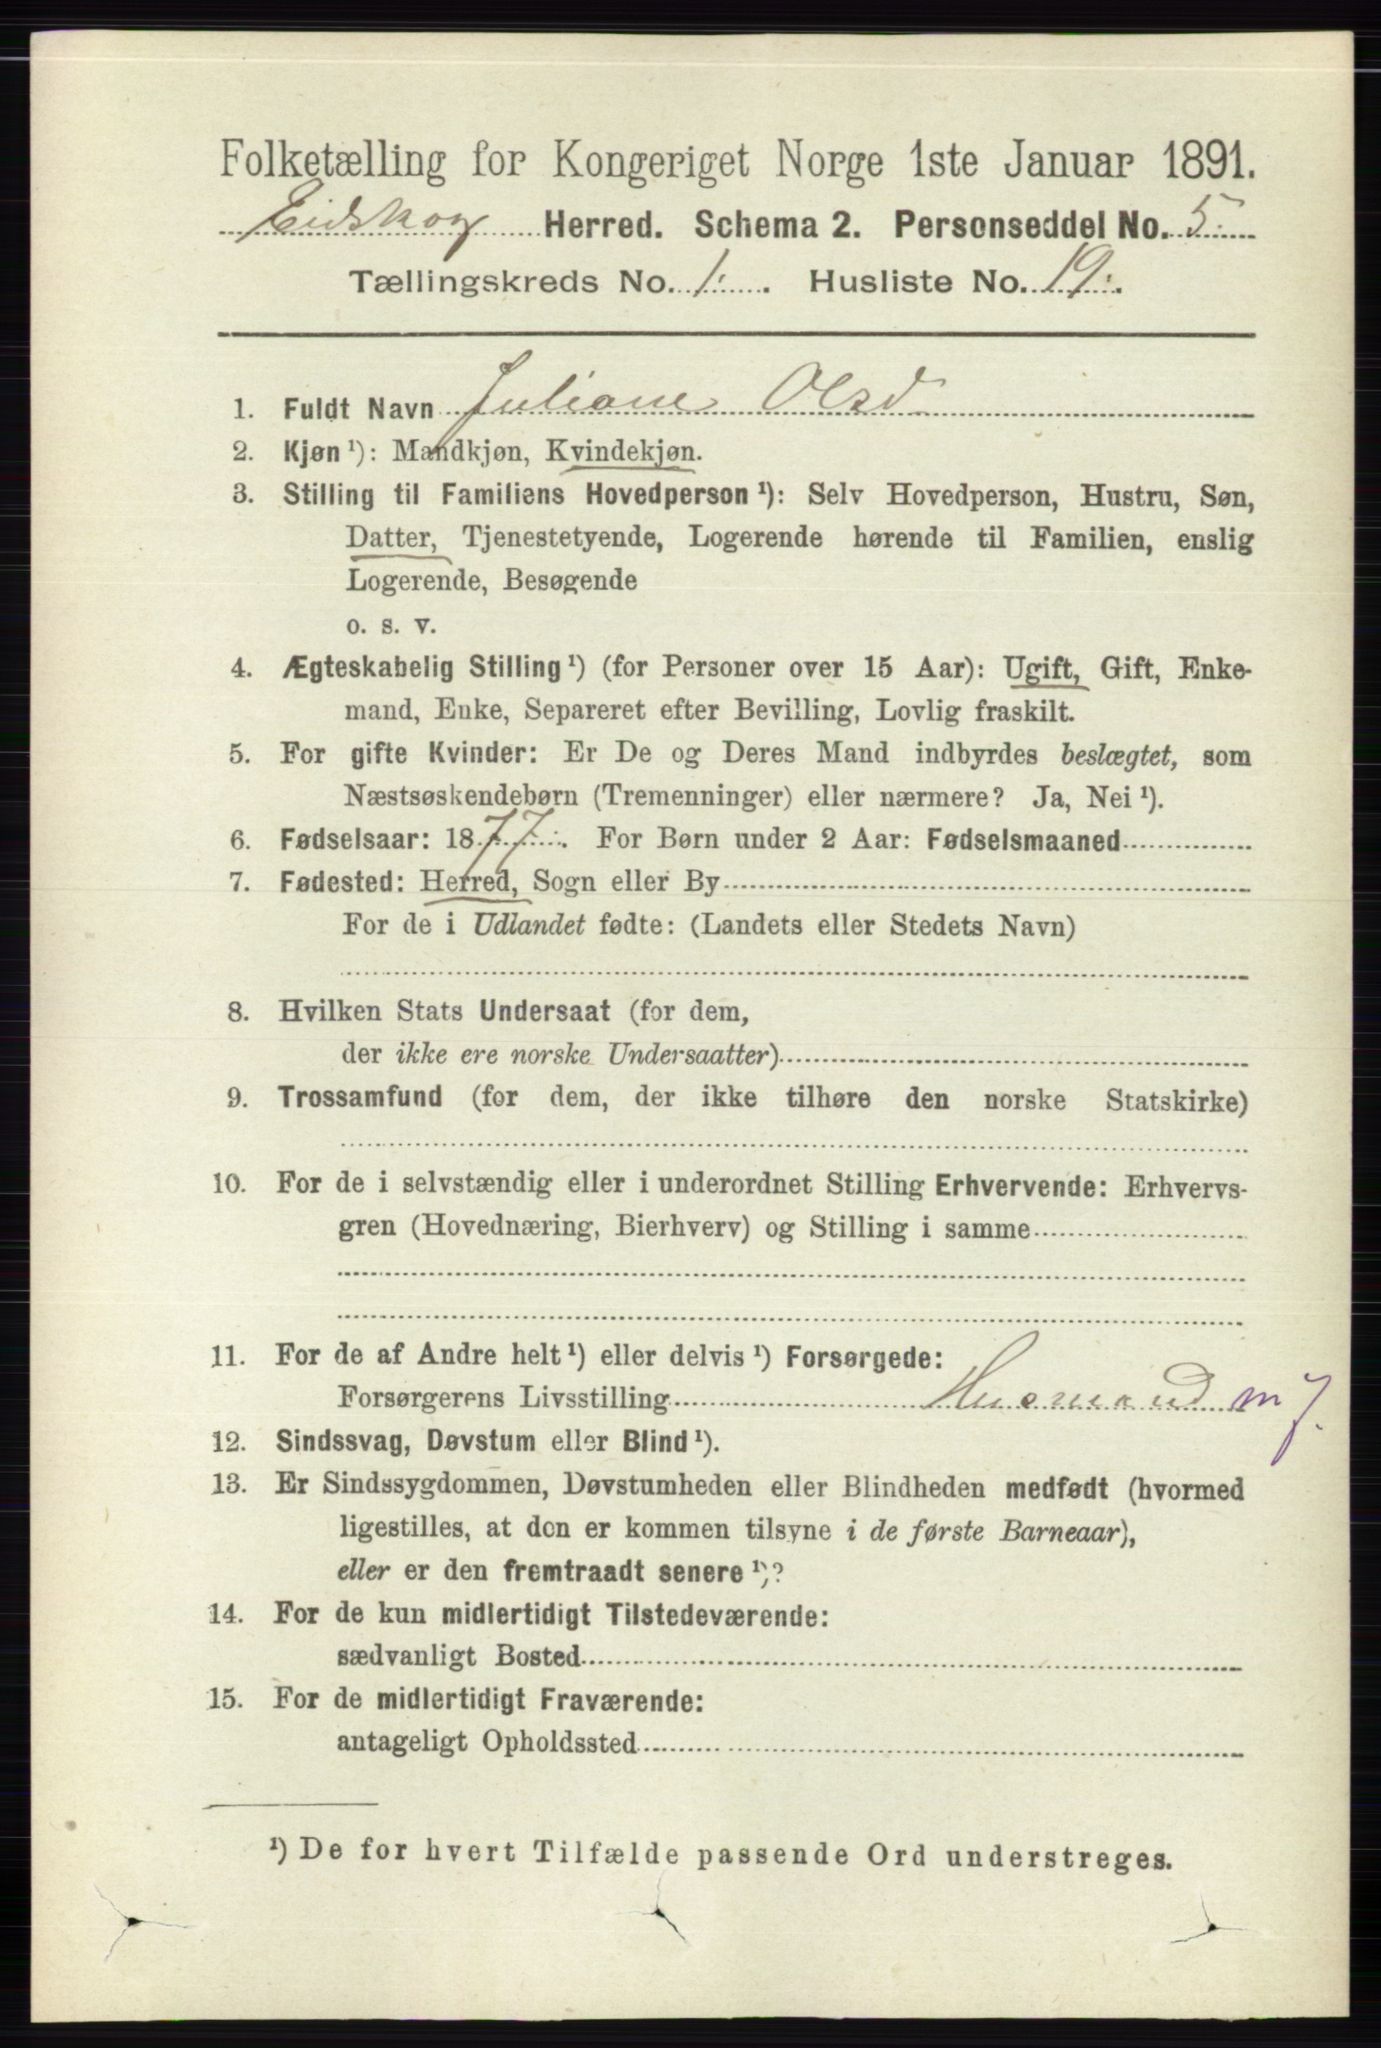 Folketælling for Kongeriget Norge 1ste Januar 1891.
Eidskog Herred. Schema 2. Personseddel No. 5.
Tællingskreds No. 1. Husliste No. 19.
1. Fuldt Navn Juliane Olsd
2. Kjøn ¹): Mandkjøn, Kvindekjøn.
3. Stilling til Familiens Hovedperson ¹): Selv Hovedperson, Hustru, Søn,
Datter, Tjenestetyende, Logerende hørende til Familien, enslig
Logerende, Besøgende
o. s. v.
4. Ægteskabelig Stilling ¹) (for Personer over 15 Aar): Ugift, Gift, Enke-
mand, Enke, Separeret efter Bevilling, Lovlig fraskilt.
5. For gifte Kvinder: Er De og Deres Mand indbyrdes beslægtet, som
Næstsøskendebørn (Tremenninger) eller nærmere? Ja, Nei ¹).
6. Fødselsaar: 1877. For Børn under 2 Aar: Fødselsmaaned
7. Fødested: Herred, Sogn eller By
For de i Udlandet fødte: (Landets eller Stedets Navn)
8. Hvilken Stats Undersaat (for dem,
der ikke ere norske Undersaatter)
9. Trossamfund (for dem, der ikke tilhøre den norske Statskirke)
10. For de i selvstændig eller i underordnet Stilling Erhvervende: Erhvervs-
gren (Hovednæring, Bierhverv) og Stilling i samme
11. For de af Andre helt ¹) eller delvis ¹) Forsørgede:
Forsørgerens Livsstilling Husmand m J.
12. Sindssvag, Døvstum eller Blind ¹).
13. Er Sindssygdommen, Døvstumheden eller Blindheden medfødt (hvormed
ligestilles, at den er kommen tilsyne i de første Barneaar),
eller er den fremtraadt senere ¹)?
14. For de kun midlertidigt Tilstedeværende:
sædvanligt Bosted
15. For de midlertidigt Fraværende:
antageligt Opholdssted
¹) De for hvert Tilfælde passende Ord understreges.